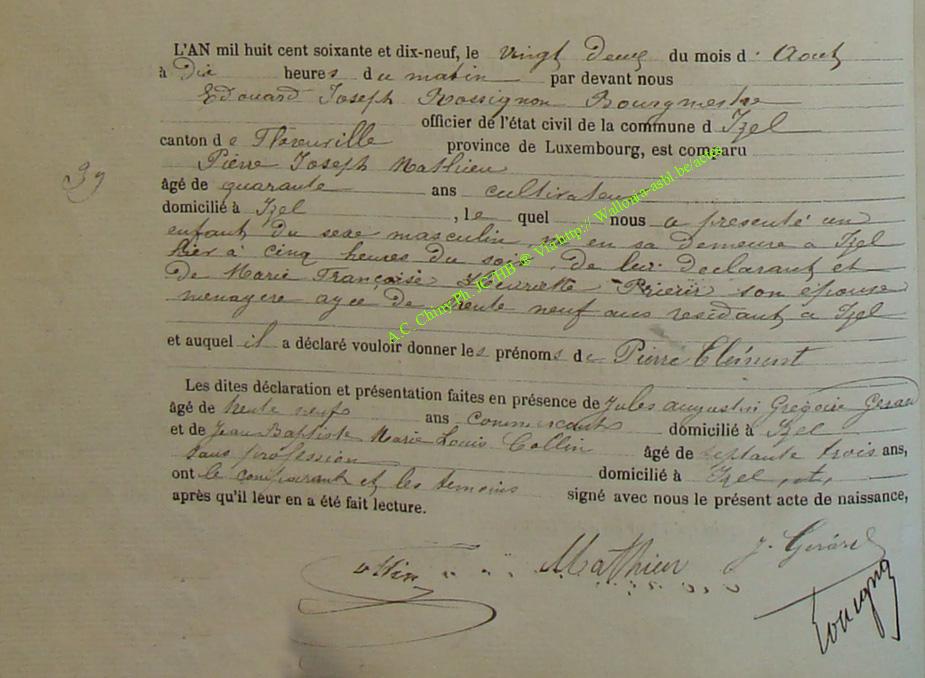 L'AN mil huit cent soixante et dix-neuf, le vingt deux du mois d'Aout
à Dix heures du matin par devant nous
Edouard Joseph Rossignon Bourgmestre
officier de l'état civil de la commune d'Izel
canton de Florenville province de Luxembourg, est comparu
Pierre Joseph Mathieu
39
âgé de quarante ans cultivateur
domicilié à Izel, lequel nous a présenté un
enfant du sexe masculin, né en sa demeure à Izel
hier à cinq heures du soir, de lui déclarant et
de Marie Françoise Henriette son épouse
menagère agée de trente neuf ans residant à Izel
et auquel il a déclaré vouloir donner les prénoms de Pierre Clément
Les dites déclaration et présentation faites en présence de Jules Augustin Grégoire Gerard
âgé de trente neuf ans commercant domicilié à Izel
et de Jean Baptiste Marie Louis Collin âgé de septante trois ans,
sans profession domicilié à Izel, et,
ont le comparant et les temoins signé avec nous le présent acte de naissance,
après qu'il leur en a été fait lecture.
Collin Mathieu J. Gerard
A.C. Chiny Ph. JC/HB @ Via http:// Wallonia-asbl.be/actes